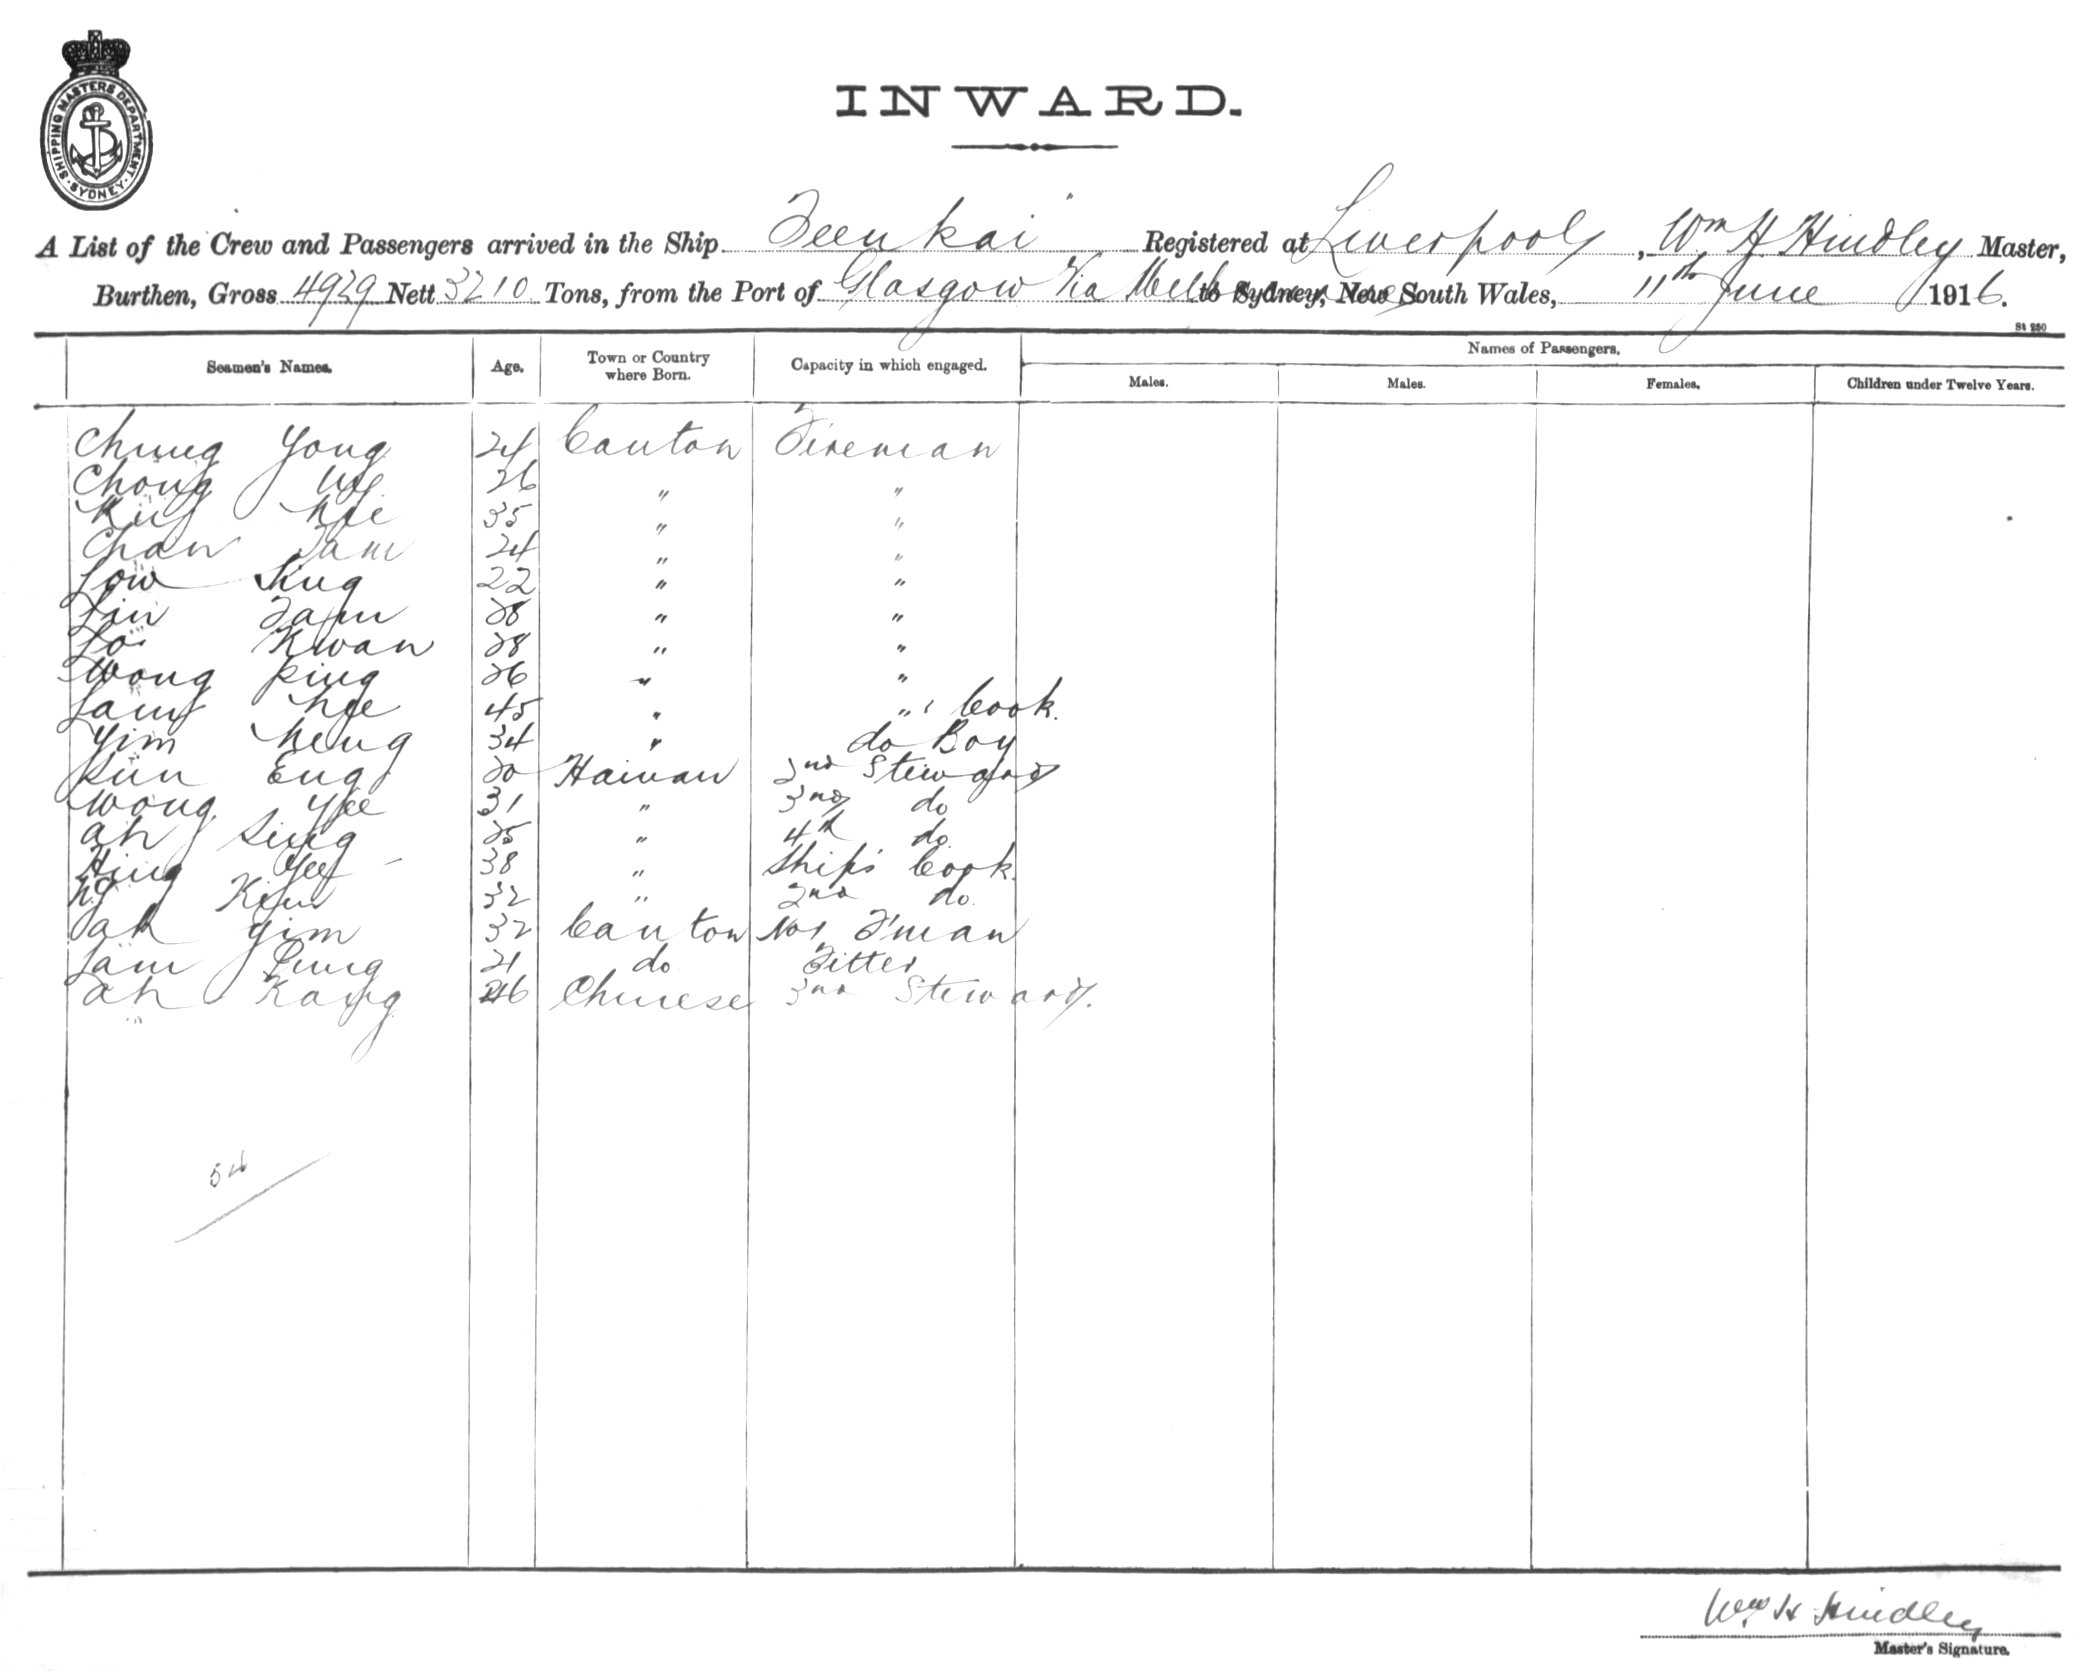 SHIPPING MASTERS DEPARTMENT · SYDNEY ·
INWARD.
A List of the Crew and Passengers arrived in the Ship Teenkai Registered at Liverpool, Wm H Hindley Master,
Burthen, Gross 4929 Nett 3210 Tons, from the Port of Glasgow Via Melbourne to Sydney, New South Wales, 11th June 1916.
St 250
Seamen's Names. Age. Town or Country where Born. Capacity in which engaged. Names of Passengers.
Males. Males. Females. Children under Twelve Years.
Chung Yong 24 Canton Fireman
Chong 26 " "
35 " "
Chan Tam 24 " "
Low King 22 " "
Lin 28 " "
Lo Kwan 28 " "
Wong King 26 " "
45 " " Cook.
Yim 34 " do Boy
Eng 20 Hainan 2nd Steward
Wong Yee 31 " 3rd do
Ah Sing 25 " 4th do
Hing Yee 38 " Ship's Cook.
32 " 2nd do.
Ah Yim 32 Canton No 1 F'man
Lam 21 do Fitter
Ah Kong 46 Chinese 3rd Steward.
54
Wm H Hindley
Master's Signature.